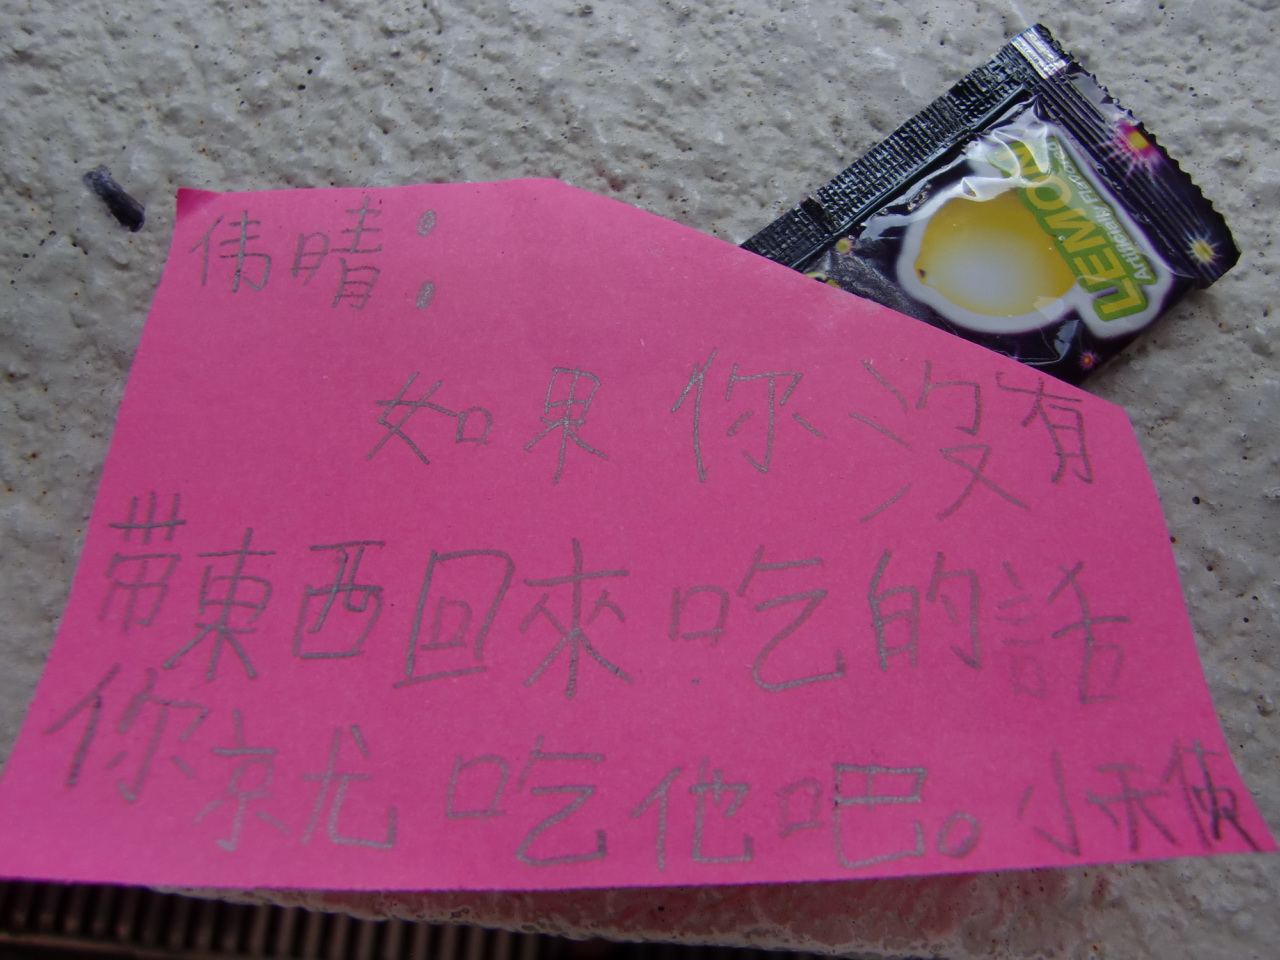 伟晴：
如果你沒有
带東西回來吃的話
你就吃他吧。小天使
LEMON
Artificially Flavored